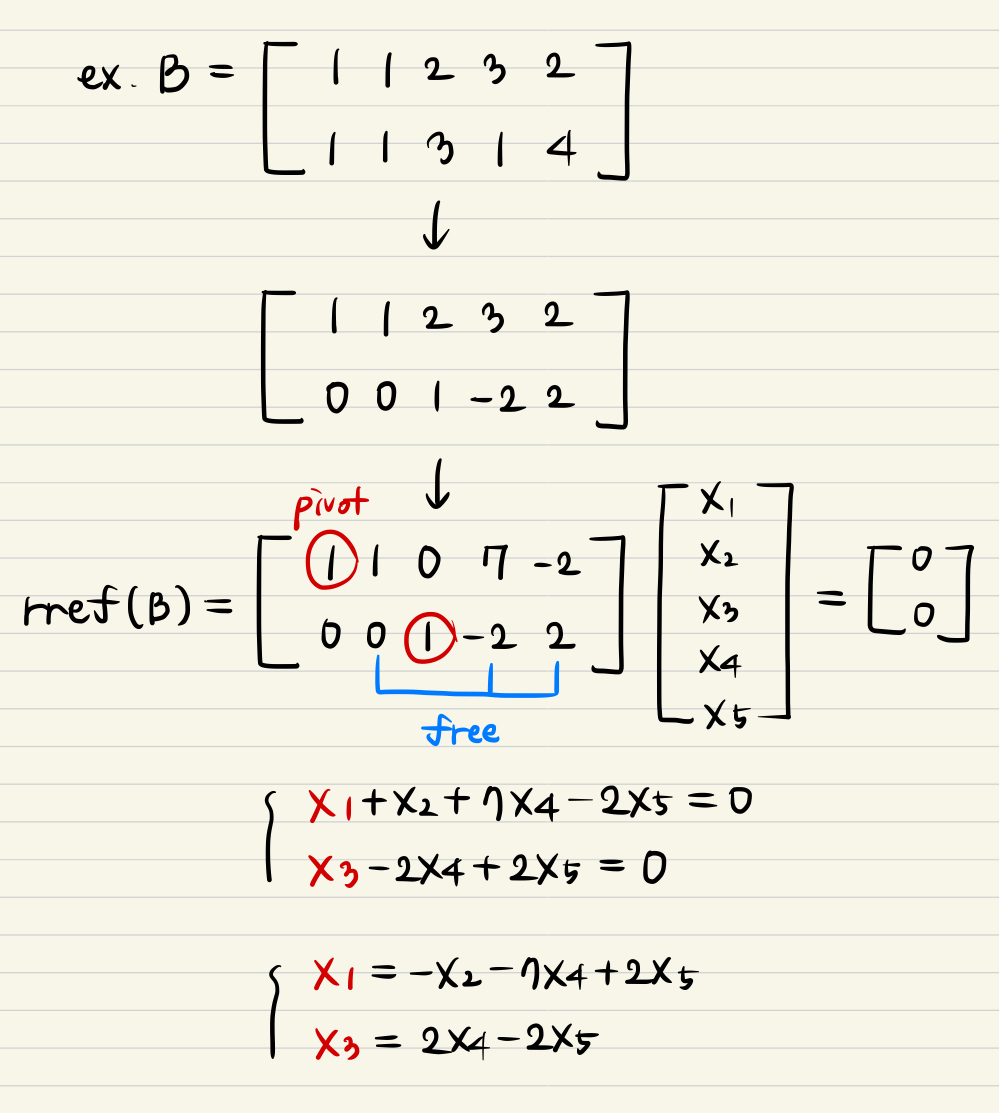 ex. B = [ 1 1 2 3 2
1 1 3 1 4 ]
↓
[ 1 1 2 3 2
0 0 1 -2 2 ]
↓
pivot
rref(B) = [ 1 1 0 7 -2
0 0 1 -2 2 ] [ x₁ x₂ x₃ x₄ x₅ ] = [ 0 0 ]
free
{ x₁+x₂+7x₄-2x₅ = 0
x₃-2x₄+2x₅ = 0
{ x₁ = -x₂-7x₄+2x₅
x₃ = 2x₄-2x₅